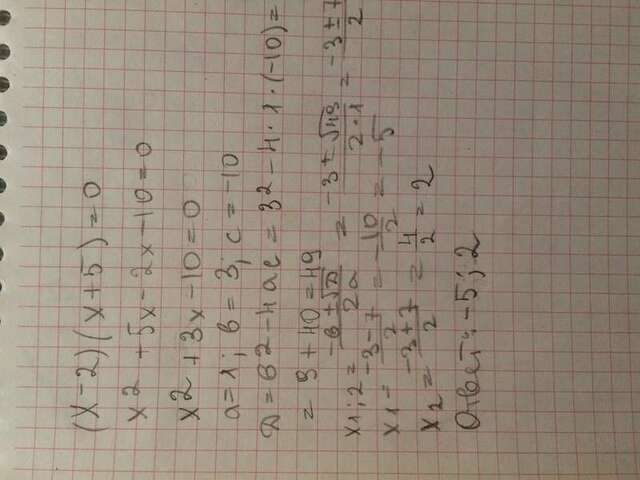 (x-2)(x+5)=0
x² +5x-2x-10=0
x² +3x-10=0
a=1; в=3; c=-10
Д=в²-4ac=3²-4·1·(-10)=
=9+40=49
x1;2=(-в±√Д)/2a = (-3±√49)/(2·1) = (-3±7)/2
x1=(-3-7)/2 = -10/2 = -5
x2=(-3+7)/2 = 4/2 = 2
Ответ: -5; 2